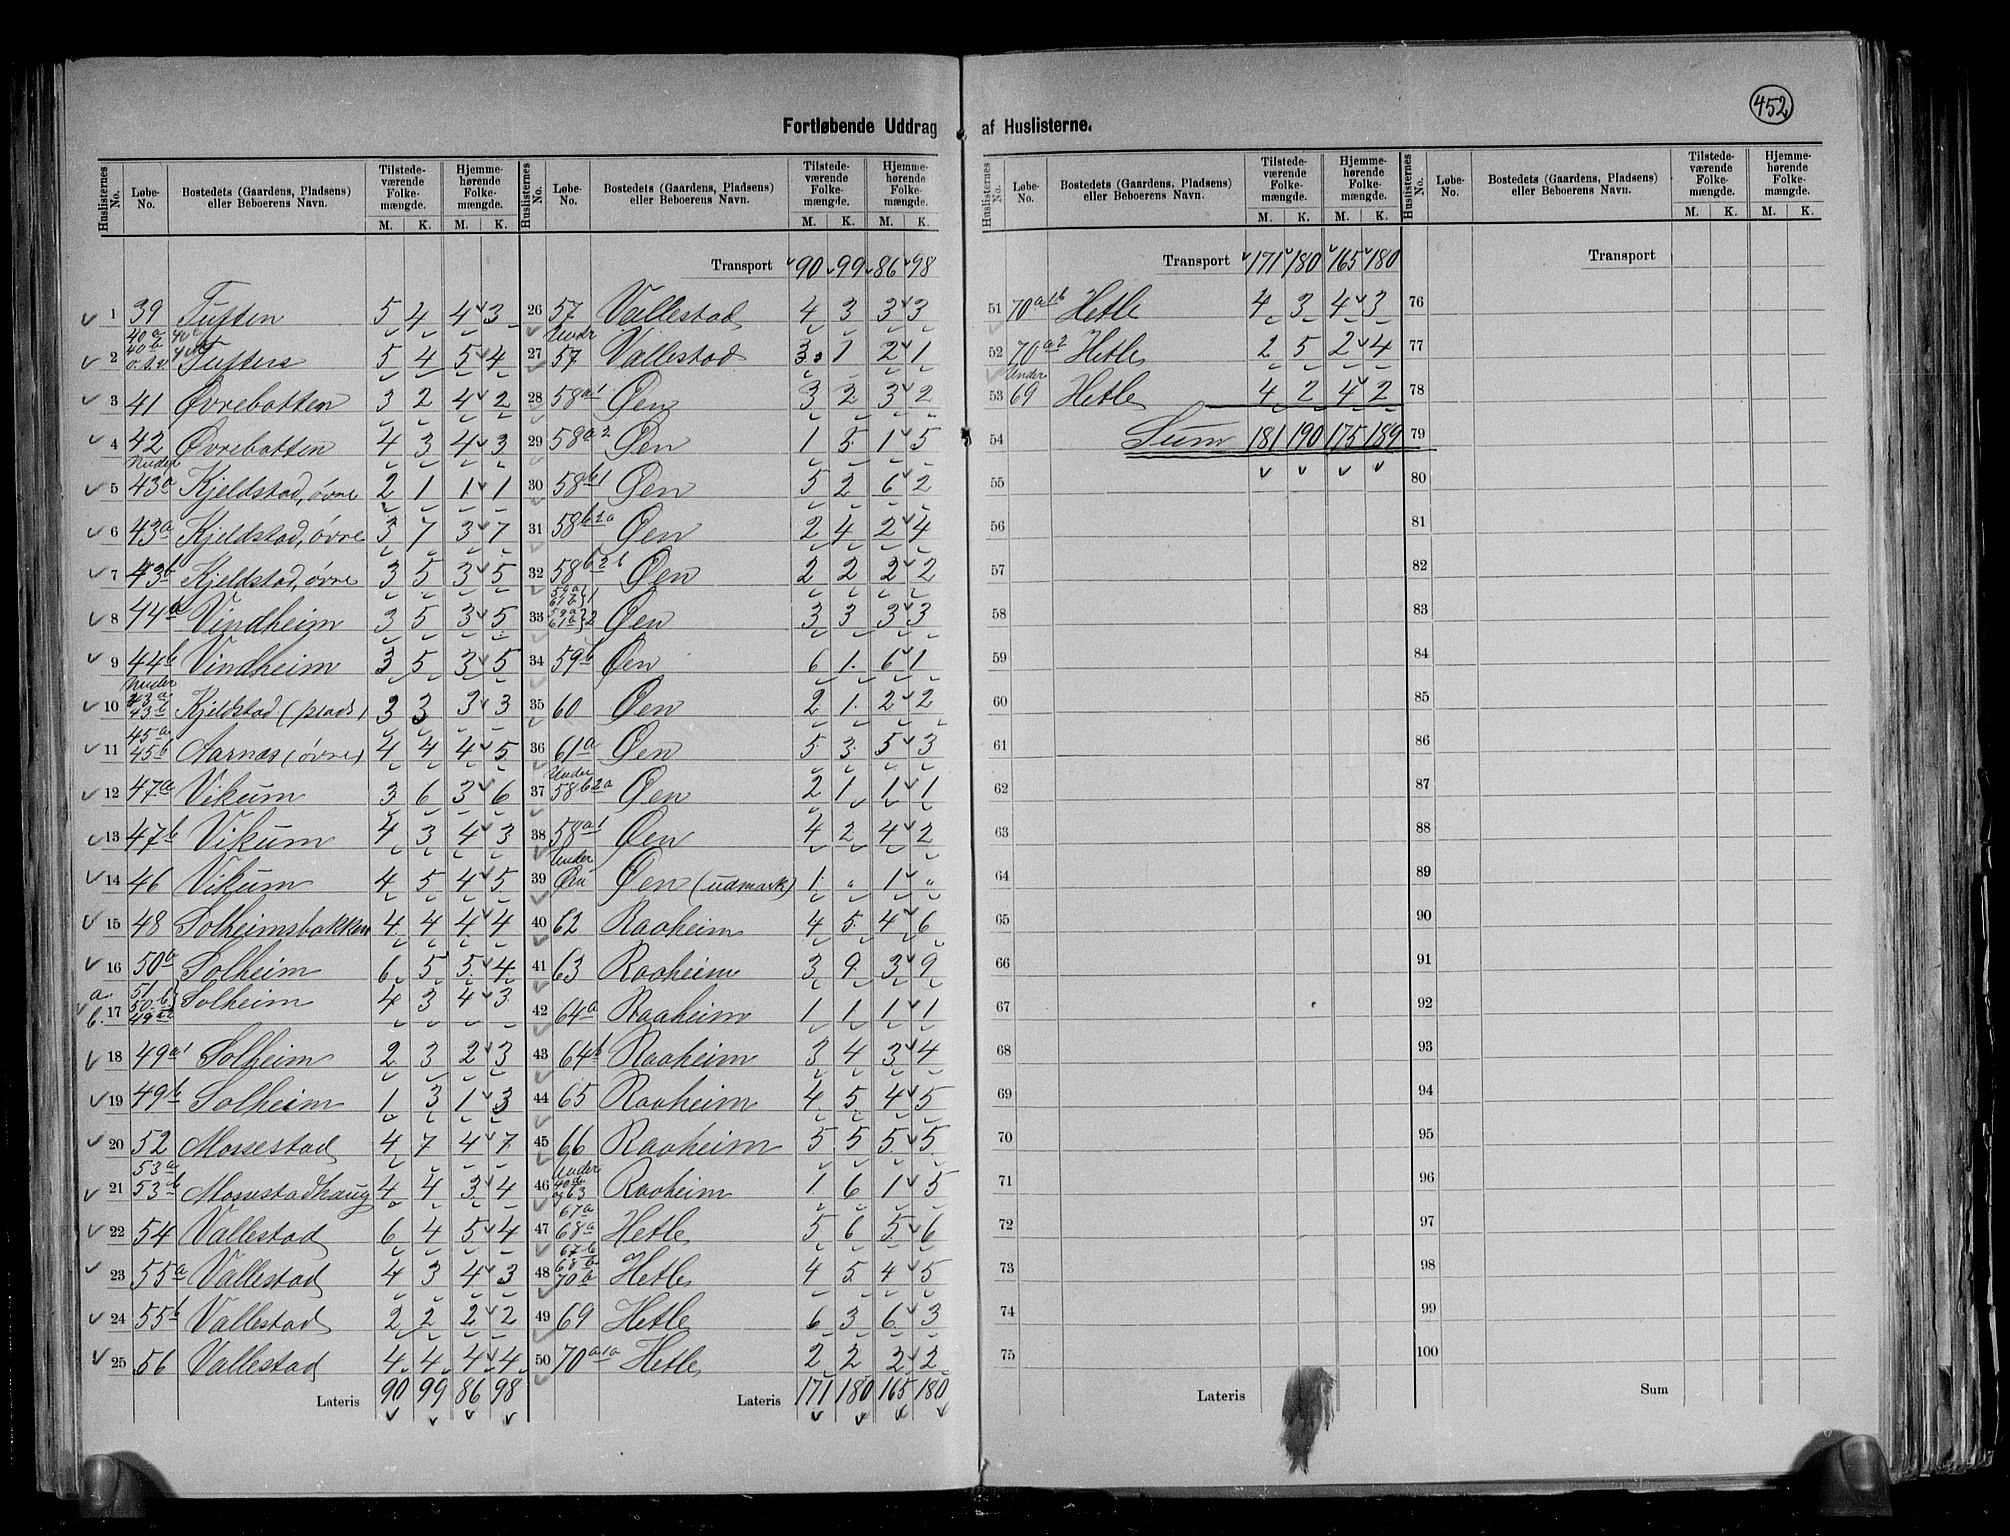 452
Fortløbende Uddrag af Huslisterne.
Huslisternes No. Løbe-No. Bostedets (Gaardens, Pladsens) eller Beboerens Navn. Tilstedeværende Folkemængde. M. K. Hjemmehørende Folkemængde. M. K.
1 39 Tuften 5 4 4 3
2 40a 40b o.s.v. Tuften 5 4 5 4
3 41 Øvrebotten 3 2 4 2
4 42 Øvrebotten 4 3 4 3
5 Under 43a Kjeldstad, øvre 2 1 1 1
6 43a Kjeldstad, øvre 3 7 3 7
7 43b Kjeldstad, øvre 3 5 3 5
8 44a Vindheim 3 5 3 5
9 44b Vindheim 3 5 3 5
10 Under 43a 43b Kjeldstad (plads) 3 3 3 3
11 45a 45b Aarnæs (øvre) 4 4 4 5
12 47a Vikum 3 6 3 6
13 47b Vikum 4 3 4 3
14 46 Vikum 4 5 4 5
15 48 Solheimsbakken 4 4 4 4
16 50a Solheim 6 5 5 4
a. b. 17 51 50b 49a2 Solheim 4 3 4 3
18 49a1 Solheim 2 3 2 3
19 49b Solheim 1 3 1 3
20 52 Mossestad 4 7 4 7
21 53a 53b Mossestadhaug 4 4 3 4
22 54 Vallestad 6 4 5 4
23 55a Vallestad 4 3 4 3
24 55b Vallestad 2 2 2 2
25 56 Vallestad 4 4 4 4
Lateris 90 99 86 98
Huslisternes No. Løbe-No. Bostedets (Gaardens, Pladsens) eller Beboerens Navn. Tilstedeværende Folkemængde. M. K. Hjemmehørende Folkemængde. M. K.
Transport 90 99 86 98
26 57 Vallestad 4 3 3 3
27 Under 57 Vallestad 3 1 2 1
28 58a1 Øen 3 2 3 2
29 58a2 Øen 1 5 1 5
30 58b1 Øen 5 2 6 2
31 58b2a Øen 2 4 2 4
32 58b2b Øen 2 2 2 2
33 59a 61b }1 59a 61a }2 Øen 3 3 3 3
34 59b Øen 6 1 6 1
35 60 Øen 2 1 2 2
36 61a Øen 5 3 5 3
37 Under 58b2a Øen 2 1 1 1
38 58a1 Øen 4 2 4 2
39 Under Øen Øen (udmark) 1 " 1 "
40 62 Raaheim 4 5 4 6
41 63 Raaheim 3 9 3 9
42 64a Raaheim 1 1 1 1
43 64b Raaheim 3 4 3 4
44 65 Raaheim 4 5 4 5
45 66 Raaheim 5 5 5 5
46 Under og 63 Raaheim 1 6 1 5
47 67a 68a Hetle 5 6 5 6
48 67b 68b 70b Hetle 4 5 4 5
49 69 Hetle 6 3 6 3
50 70a1a Hetle 2 2 2 2
Lateris 171 180 165 180
Huslisternes No. Løbe-No. Bostedets (Gaardens, Pladsens) eller Beboerens Navn. Tilstedeværende Folkemængde. M. K. Hjemmehørende Folkemængde. M. K.
Transport 171 180 165 180
51 70a1b Hetle 4 3 4 3
52 70a2 Hetle 2 5 2 4
53 Under 69 Hetle 4 2 4 2
54 Sum 181 190 175 189
55
56
57
58
59
60
61
62
63
64
65
66
67
68
69
70
71
72
73
74
75
Lateris
Huslisternes No. Løbe-No. Bostedets (Gaardens, Pladsens) eller Beboerens Navn. Tilstedeværende Folkemængde. M. K. Hjemmehørende Folkemængde. M. K.
Transport
76
77
78
79
80
81
82
83
84
85
86
87
88
89
90
91
92
93
94
95
96
97
98
99
100
Sum